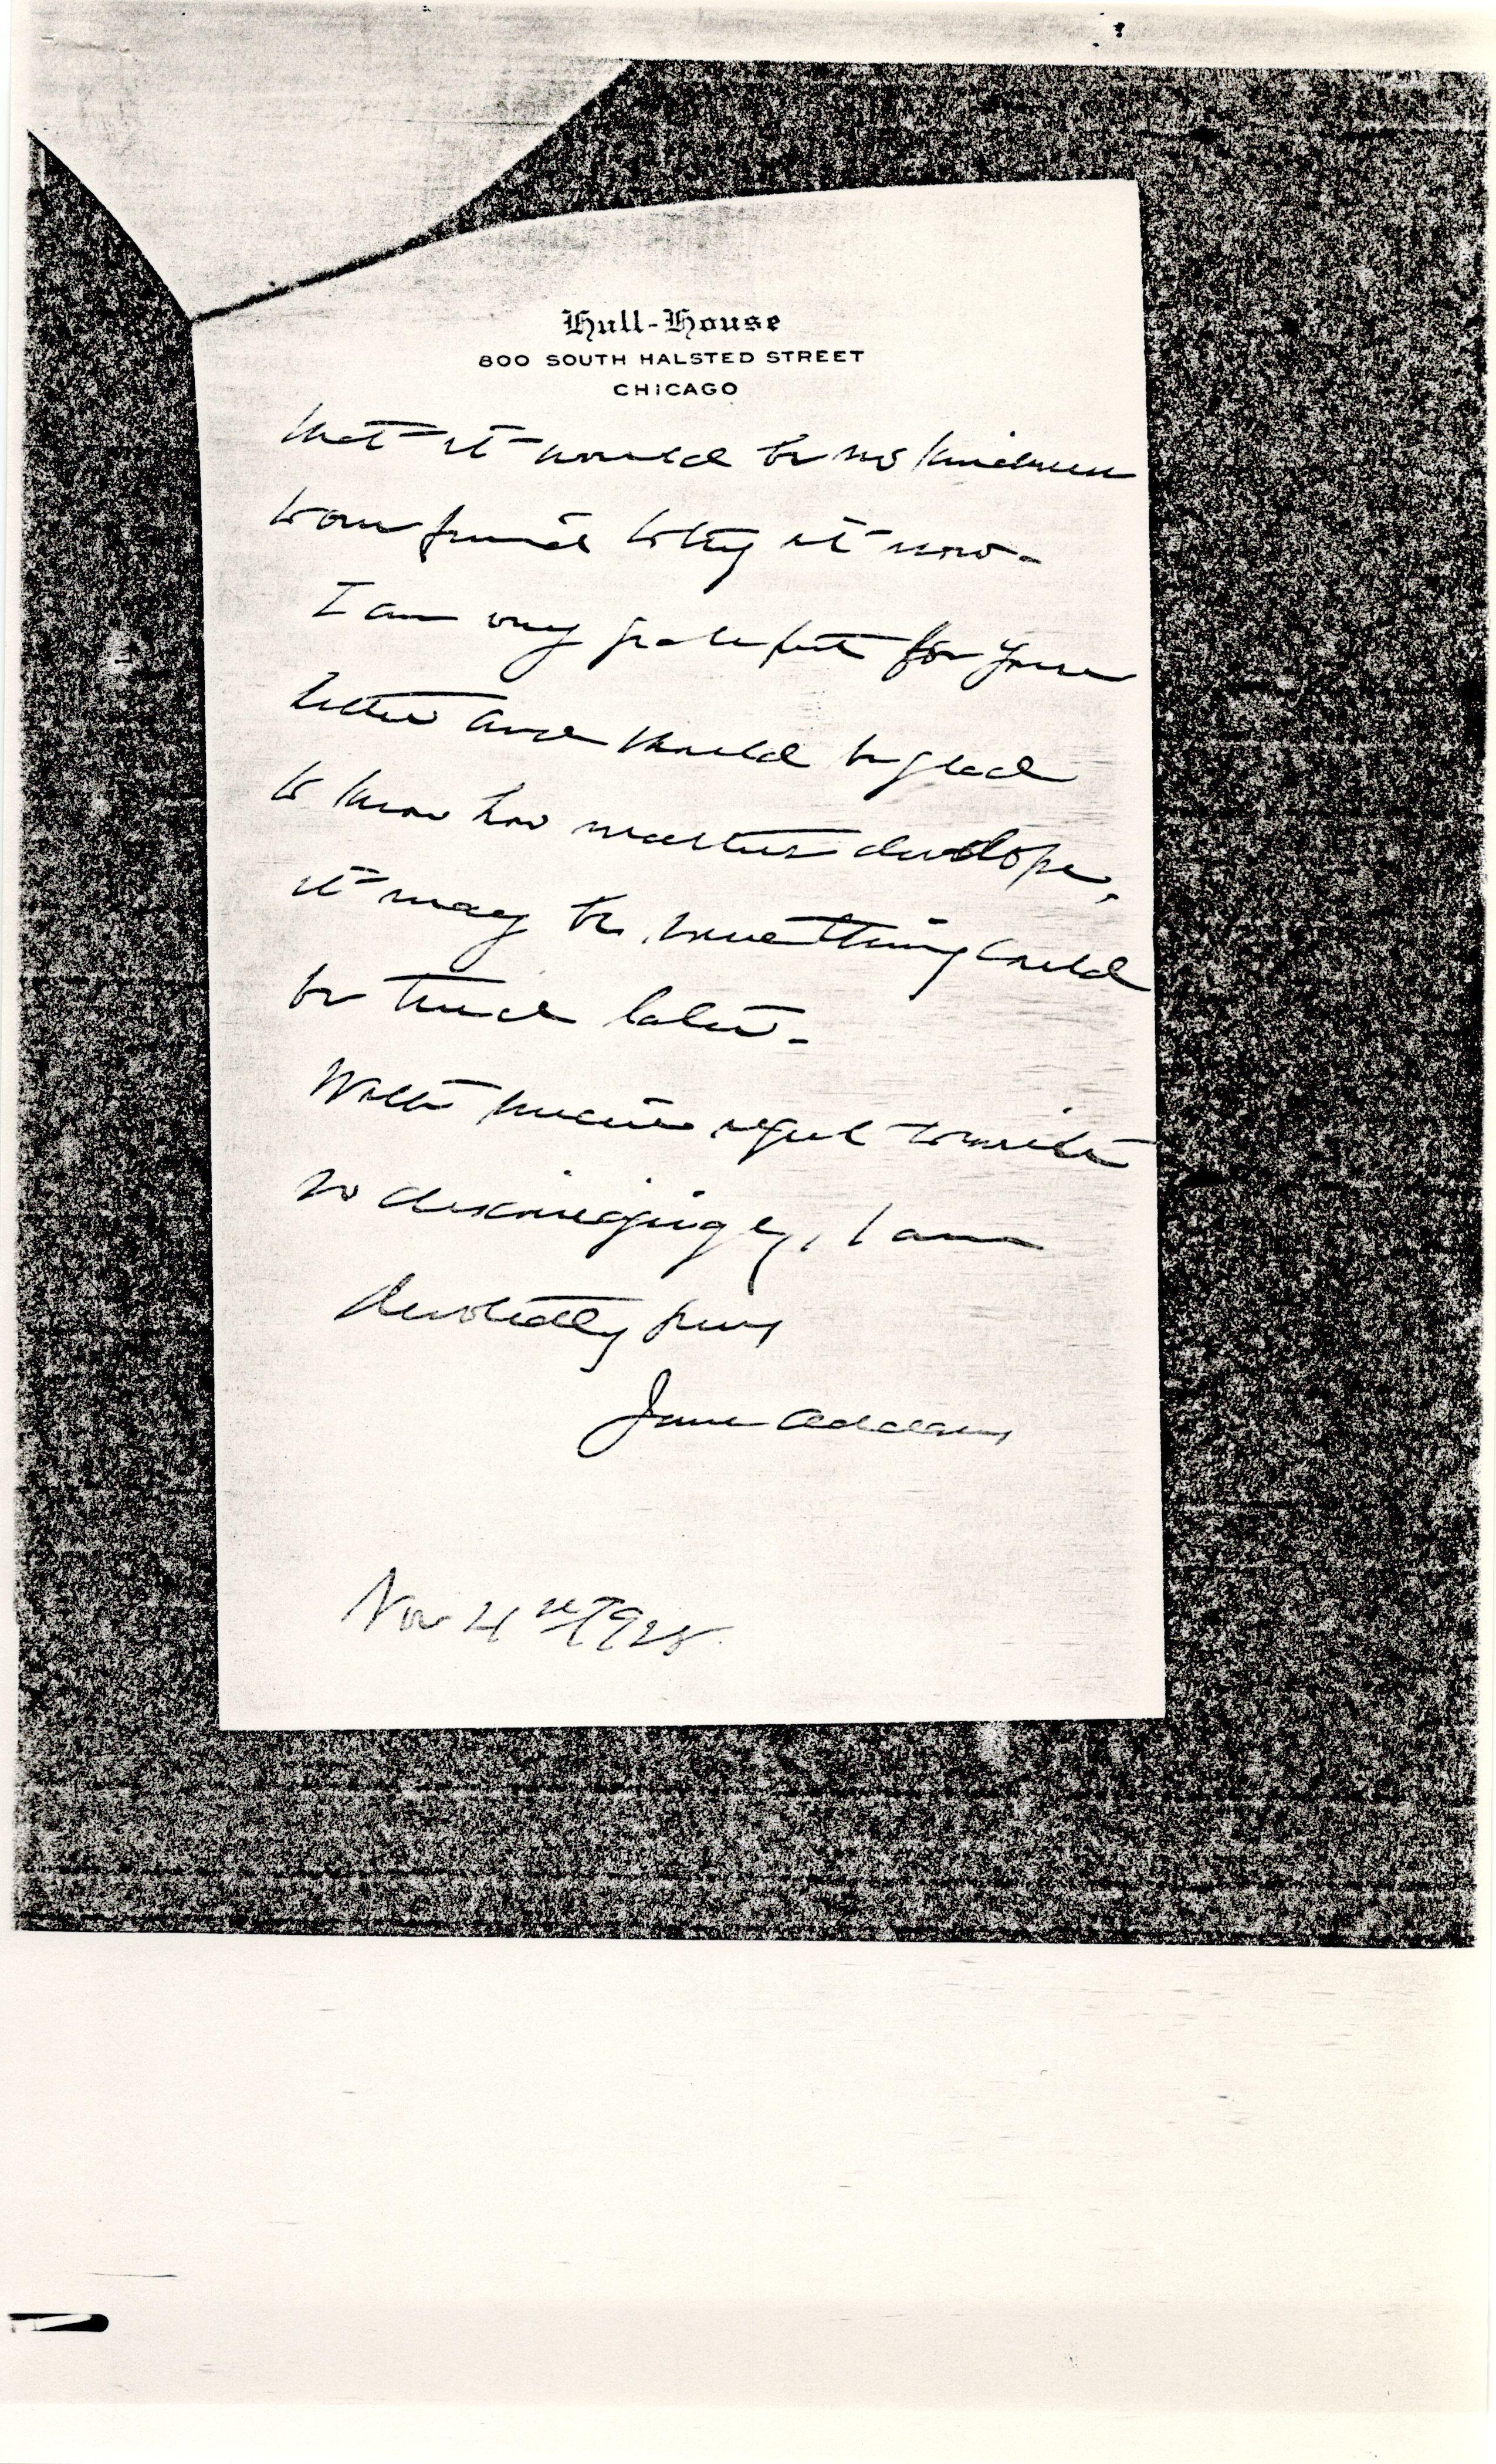 Hull-House
800 SOUTH HALSTED STREET
CHICAGO
that it would be no kindness
to our friend to try it now -
I am very grateful for your
letter and should be glad
to know how matters develope,
it may be something could
be tried later -
With sincere regret to write
so discouragingly, I am
devotedly yours
Jane Addams
Nov 4" 1928